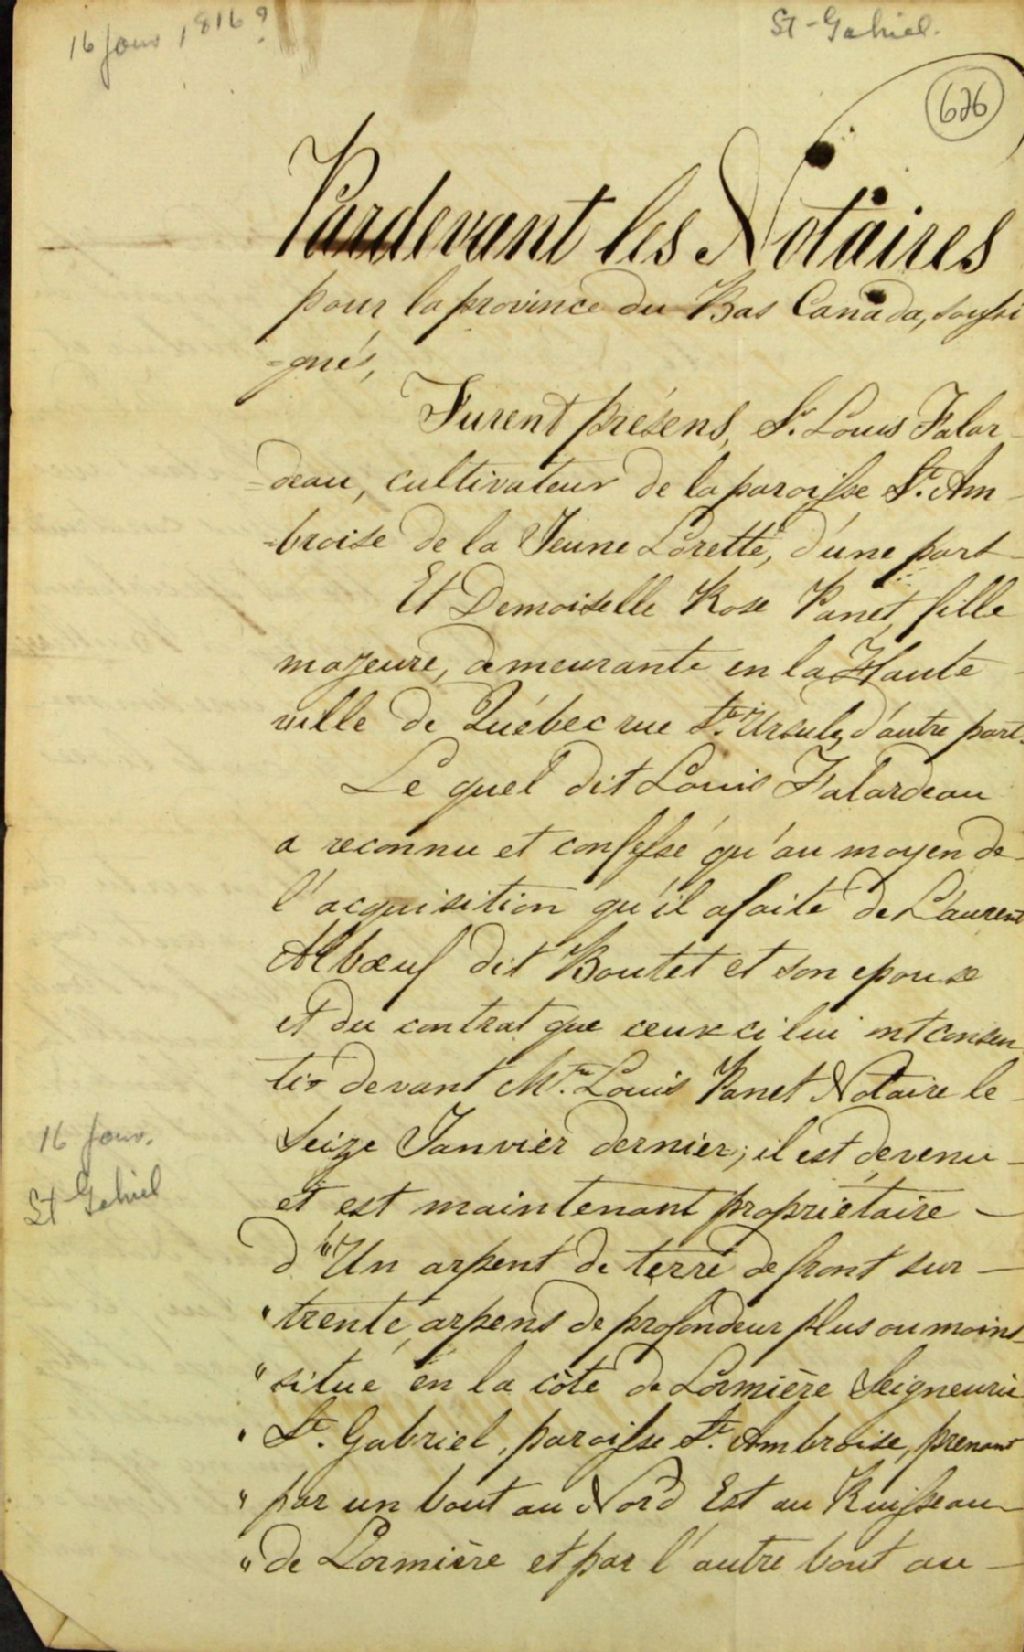 16 Janv 1816?
St-Gabriel.
626
Pardevant les Notaires
pour la province du Bas Canada, soussi
-gnés,
Furent présens, Sr. Louis Falar-
-deau, cultivateur de la paroisse St. Am-
-broise de la Jeune Lorette, d'une part
Et Demoiselle Rose Panet, fille
majeure, demeurante en la Haute
ville de Québec rue Ste. Ursule, d'autre part.
Le quel dit Louis Falardeau
a reconnu et confessé qu'au moyen de
l'acquisition qu'il a faite de Laurent
Albœuf dit Boutet et son epouse
et du contrat que ceux ci lui ont consen
tis devant Mtre. Louis Panet Notaire le
Seize Janvier dernier; il est devenu
et est maintenant propriétaire
d'"Un arpent de terre de front sur
" trente arpens de profondeur plus ou moins
" situé en la côte de Lormière Seigneurie
" St. Gabriel, paroisse St. Ambroise, prenant
" par un bout au Nord Est au Ruisseau
" de Lormière et par l'autre bout au
16 Janv.
St Gabriel